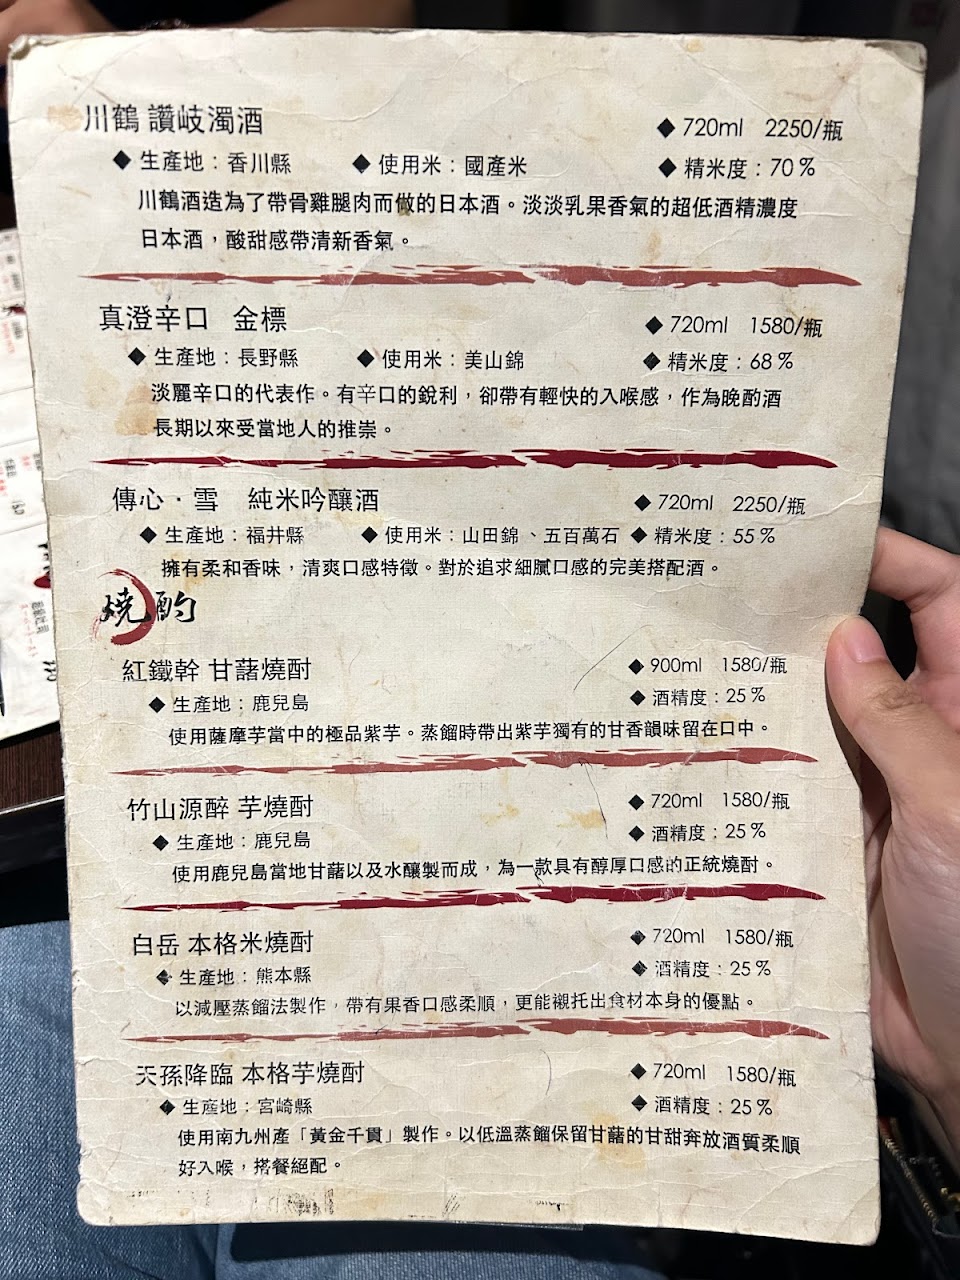 川鶴 讚岐濁酒
◆ 720ml 2250/瓶
◆ 生產地：香川縣 ◆ 使用米：國產米 ◆ 精米度：70%
川鶴酒造為了帶骨雞腿肉而做的日本酒。淡淡乳果香氣的超低酒精濃度
日本酒，酸甜感帶清新香氣。
真澄辛口 金標
◆ 720ml 1580/瓶
◆ 生產地：長野縣 ◆ 使用米：美山錦 ◆ 精米度：68%
淡麗辛口的代表作。有辛口的銳利，卻帶有輕快的入喉感，作為晚酌酒
長期以來受當地人的推崇。
傳心·雪 純米吟釀酒
◆ 720ml 2250/瓶
◆ 生產地：福井縣 ◆ 使用米：山田錦、五百萬石 ◆ 精米度：55%
擁有柔和香味，清爽口感特徵。對於追求細膩口感的完美搭配酒。
燒酌
紅鐵幹 甘藷燒酎
◆ 900ml 1580/瓶
◆ 生產地：鹿兒島 ◆ 酒精度：25%
使用薩摩芋當中的極品紫芋。蒸餾時帶出紫芋獨有的甘香韻味留在口中。
竹山源醉 芋燒酎
◆ 720ml 1580/瓶
◆ 生產地：鹿兒島 ◆ 酒精度：25%
使用鹿兒島當地甘藷以及水釀製而成，為一款具有醇厚口感的正統燒酎。
白岳 本格米燒酎
◆ 720ml 1580/瓶
◆ 生產地：熊本縣 ◆ 酒精度：25%
以減壓蒸餾法製作，帶有果香口感柔順，更能襯托出食材本身的優點。
天孫降臨 本格芋燒酎
◆ 720ml 1580/瓶
◆ 生產地：宮崎縣 ◆ 酒精度：25%
使用南九州產「黃金千貫」製作。以低溫蒸餾保留甘藷的甘甜奔放酒質柔順
好入喉，搭餐絕配。